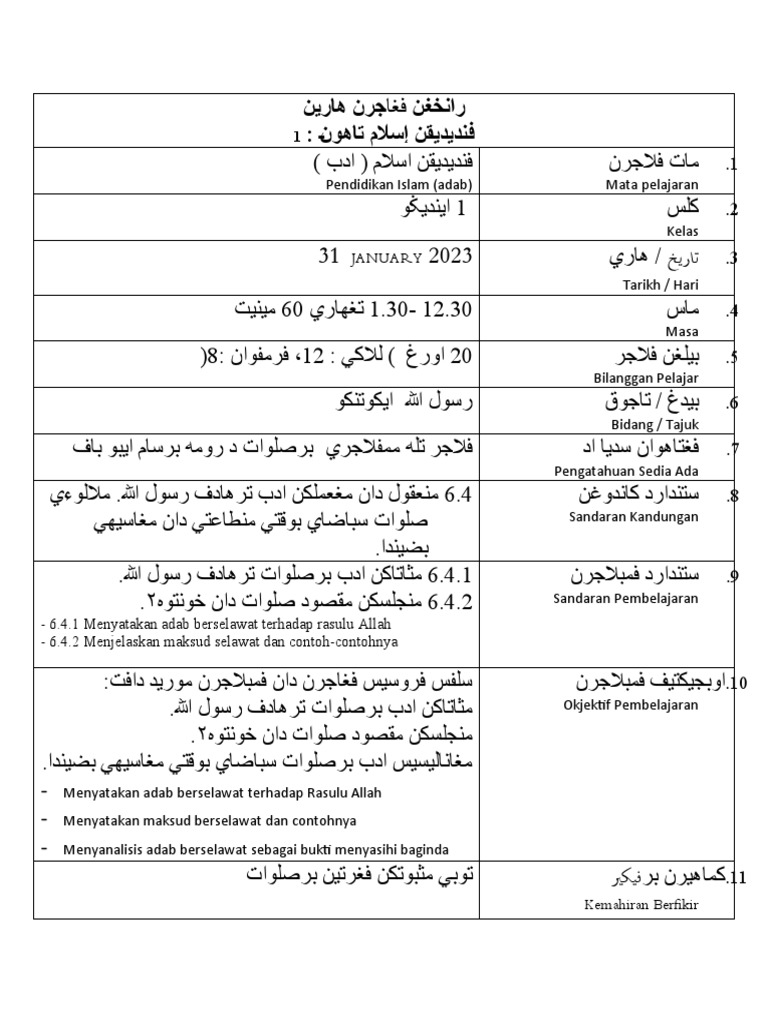 رانخغن ڤڠاجرن هارين
ڤنديديقن إسلام تاهون : 1
1. مات ڤلاجرن
Mata pelajaran
ڤنديديقن اسلام ( ادب )
Pendidikan Islam (adab)
2. کلس
Kelas
1 اينديݢو
3. تاريخ / هاري
Tarikh / Hari
31 JANUARY 2023
4. ماس
Masa
12.30 -1.30 تڠهاري 60 مينيت
5. بيلڠن ڤلاجر
Bilanggan Pelajar
20 اورڠ ( للاکي : 12، ڤرمڤوان :8(
6. بيدڠ / تاجوق
Bidang / Tajuk
رسول الله ايکوتنکو
7. ڤڠتاهوان سديا اد
Pengatahuan Sedia Ada
ڤلاجر تله ممڤلاجري برصلوات د رومه برسام ايبو باڤ
8. ستندارد کاندوڠن
Sandaran Kandungan
6.4 منعقول دان مڠعملکن ادب ترهادڤ رسول الله. ملالوءي
صلوات سباضاي بوقتي منطاعتي دان مڠاسيهي
بضيندا.
9. ستندارد ڤمبلاجرن
Sandaran Pembelajaran
6.4.1 مڽاتاکن ادب برصلوات ترهادڤ رسول الله.
6.4.2 منجلسکن مقصود صلوات دان خونتوه٢.
- 6.4.1 Menyatakan adab berselawat terhadap rasulu Allah
- 6.4.2 Menjelaskan maksud selawat dan contoh-contohnya
10. اوبجيکتيڤ ڤمبلاجرن
Okjektif Pembelajaran
سلڤس ڤروسيس ڤڠاجرن دان ڤمبلاجرن موريد داڤت:
مڽاتاکن ادب برصلوات ترهادڤ رسول الله.
منجلسکن مقصود صلوات دان خونتوه٢.
مڠاناليسيس ادب برصلوات سباضاي بوقتي مڠاسيهي بضيندا.
- Menyatakan adab berselawat terhadap Rasulu Allah
- Menyatakan maksud berselawat dan contohnya
- Menyanalisis adab berselawat sebagai bukti menyasihi baginda
11. کماهيرن برفيکير
Kemahiran Berfikir
توبي مڽبوتکن ڤڠرتين برصلوات